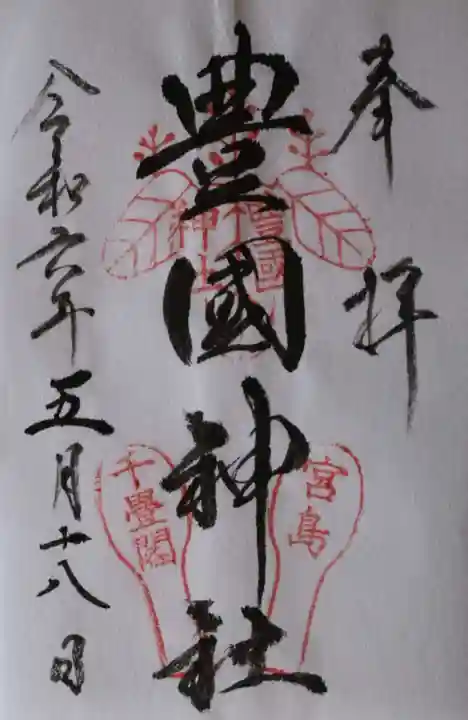 奉拝
豊國神社
令和六年五月十八日
宮島
千畳閣